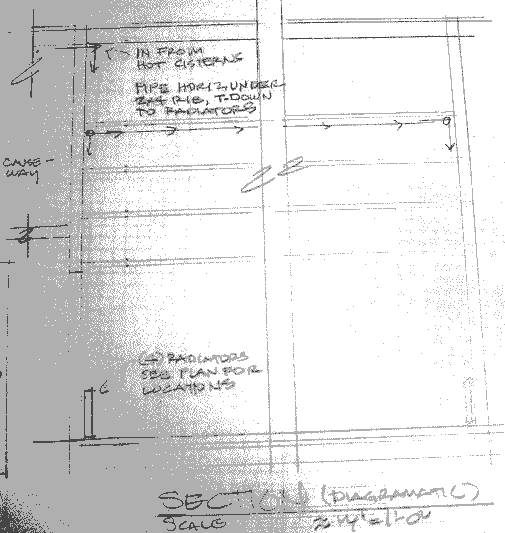 IN FROM
HOT CISTERNS
PIPE HORIZ. UNDER
2x4 RIB, T-DOWN
TO RADIATORS
CAUSE-
WAY
RADIATORS
SEE PLAN FOR
LOCATIONS
SECTION (DIAGRAMATIC)
SCALE